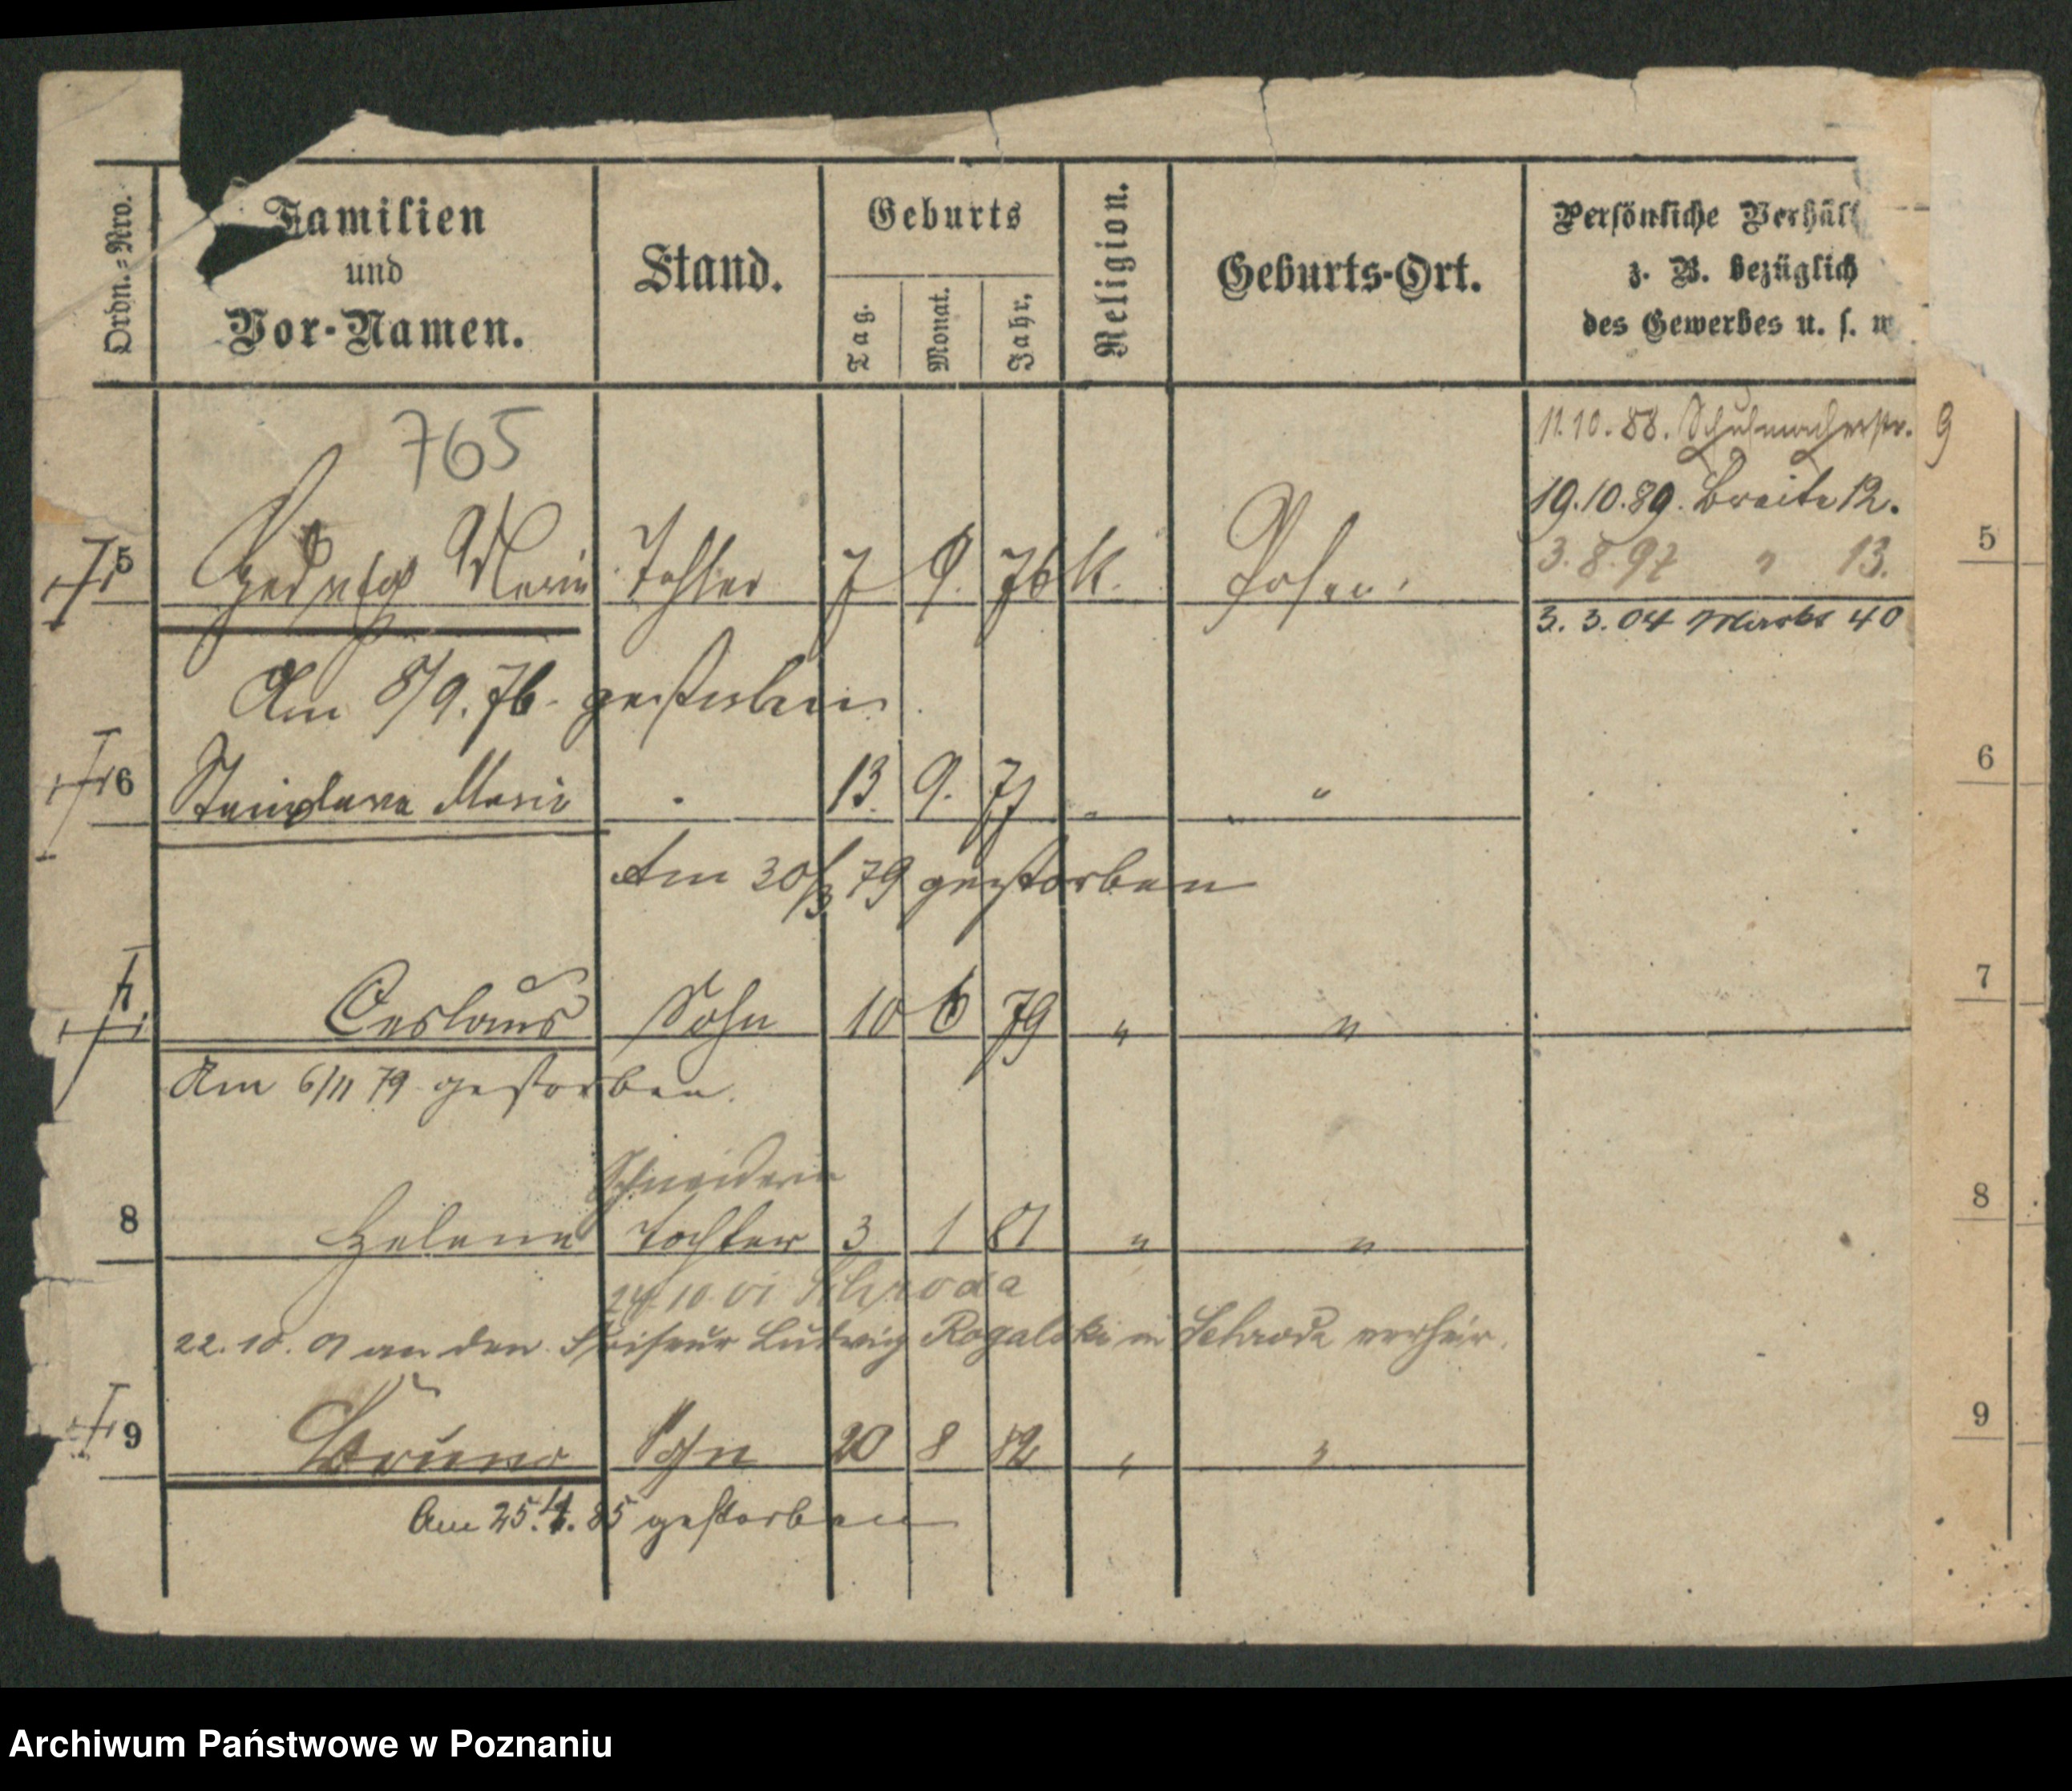 Ordn.-Nro.
Familien und Vor-Namen.
Stand.
Geburts
Tag.
Monat.
Jahr.
Religion.
Geburts-Ort.
Persönliche Verhält
z. B. bezüglich
des Gewerbes u. s. w
765
11.10.88. Schuhmacherstr. 9
19.10.89. Breite 12.
3.8.97 " 13.
5 Hedwig Marie Tochter 7 9. 76 k. Posen.
5
3. 3. 04 Markt 40
Am 8/9. 76. gestorben
6 Stanislava Marie " 13. 9. 77 " "
6
Am 30/3 79 gestorben
7 Ceslaus Sohn 10 6 79 " "
7
Am 6/11 79 gestorben.
Schneiderin
8 Helene Tochter 3 1 81 " "
8
24 10 01 Schroda
22. 10. 01 an den Friseur Ludwig Rogalski in Schroda verheir.
9 Bruno Sohn 20 8 82 " "
9
Am 25.4.85 gestorben
Archiwum Państwowe w Poznaniu